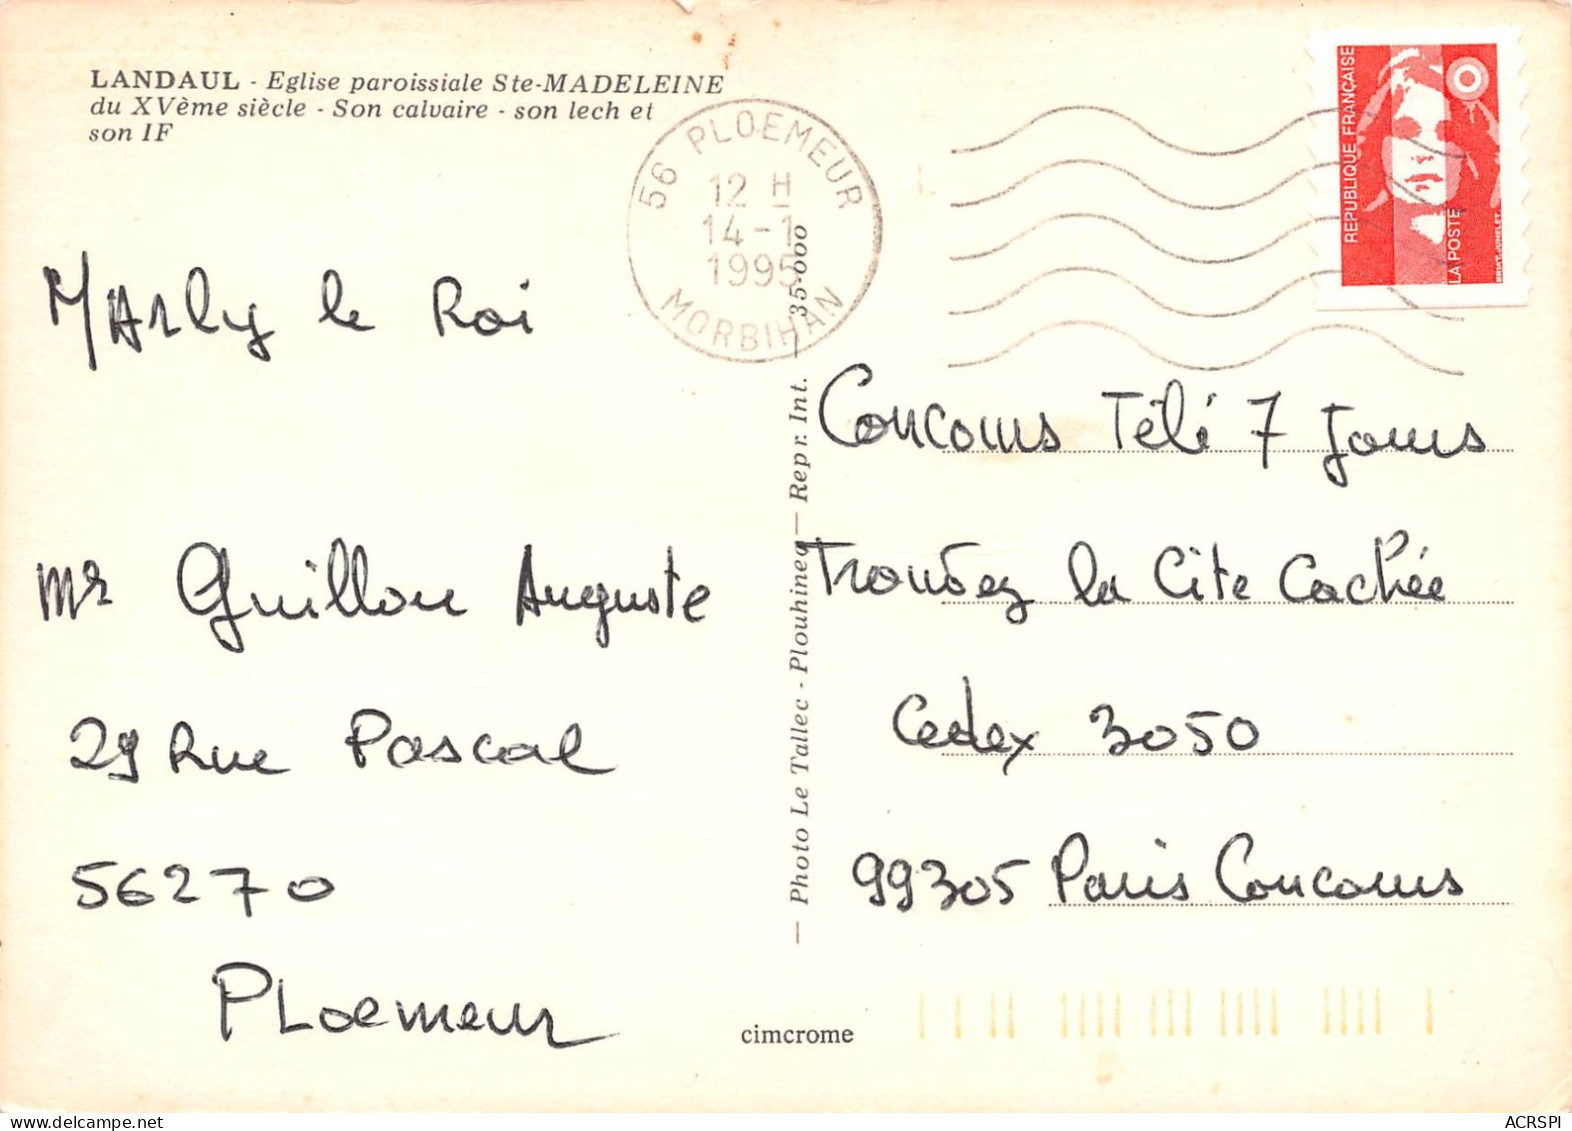 LANDAUL - Eglise paroissiale Ste-MADELEINE
du XVème siècle - Son calvaire - son lech et
son IF
56 PLOEMEUR
12 H
14-1
1995
MORBIHAN
REPUBLIQUE FRANÇAISE
LA POSTE
BRIAT-JUMELET
Marly le Roi
Mr Guillou Auguste
29 Rue Pascal
56270
PLoemeur
— Photo Le Tallec - Plouhinec — Repr. Int. — 35-000
Concours Télé 7 Jours
Trouvez la Cité Cachée
Cedex 3050
99305 Paris Concours
cimcrome
ACRSPI